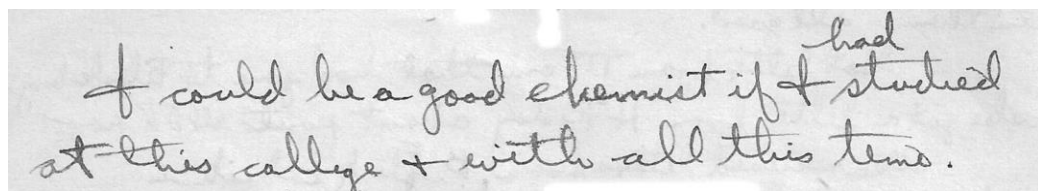 had
I could be a good chemist if I studied
at this college + with all this time.